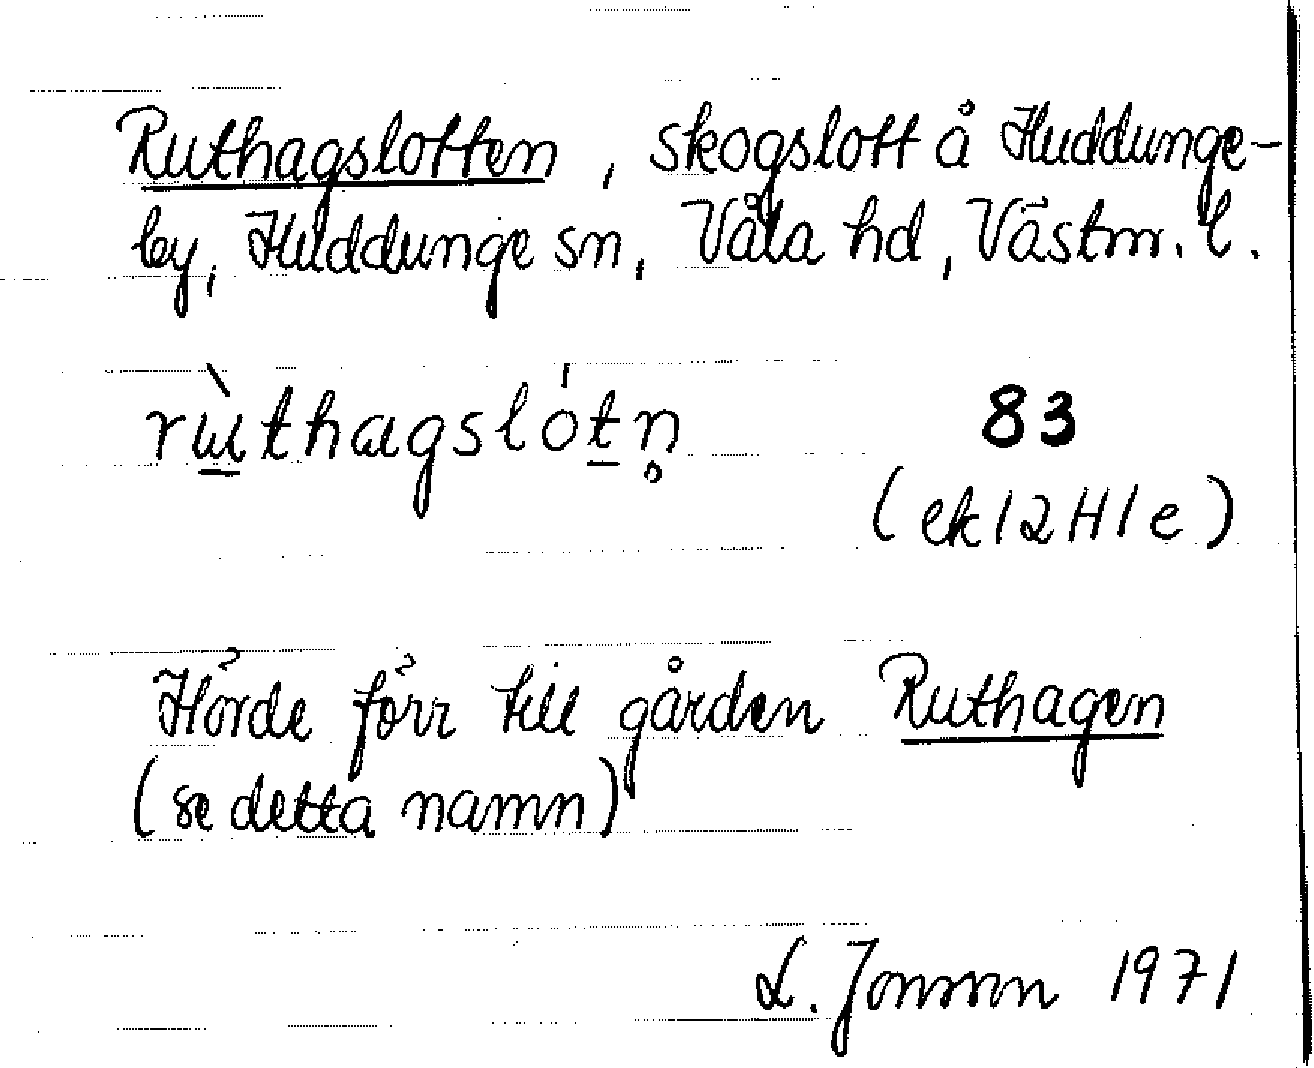 Ruthagslotten, skogslott å Huddunge-
by, Huddunge sn, Våla hd, Västm. l.
rùthagslótn̥ 83
(ek 12 H 1 e)
Hörde förr till gården Ruthagen
(se detta namn)
L. Jonsson 1971